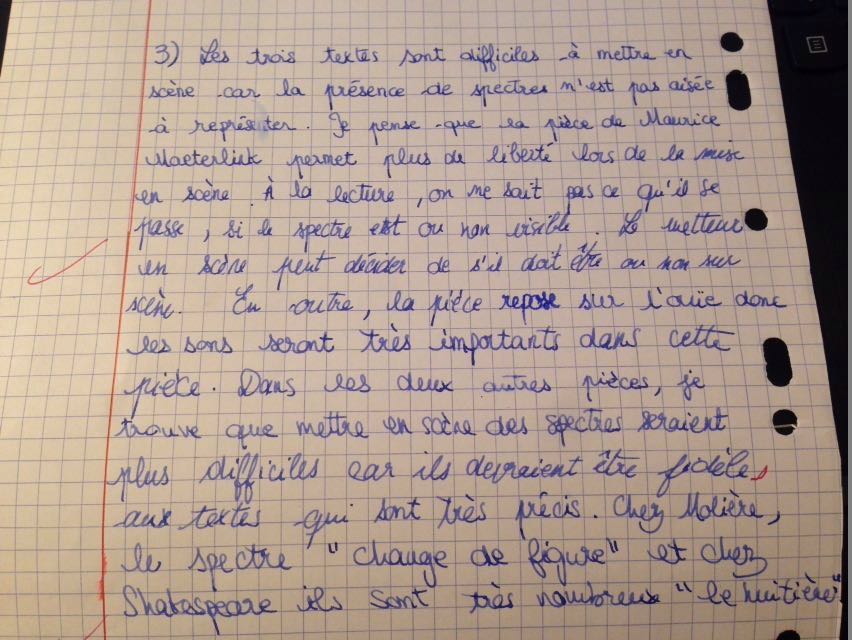 3) Les trois textes sont difficiles à mettre en
scène car la présence de spectres n'est pas aisée
à représenter. Je pense que la pièce de Maurice
Maeterlink permet plus de liberté lors de la mise
en scène. À la lecture, on ne sait pas ce qu'il se
passe, si le spectre est ou non visible. Le metteur
en scène peut décider de s'il doit être ou non sur
scène. En outre, la pièce repose sur l'ouïe donc
les sons seront très importants dans cette
pièce. Dans les deux autres pièces, je
trouve que mettre en scène des spectres seraient
plus difficiles car ils devraient être fidèles
aux textes qui sont très précis. Chez Molière,
le spectre "change de figure" et chez
Shakespeare ils sont très nombreux "le huitière"